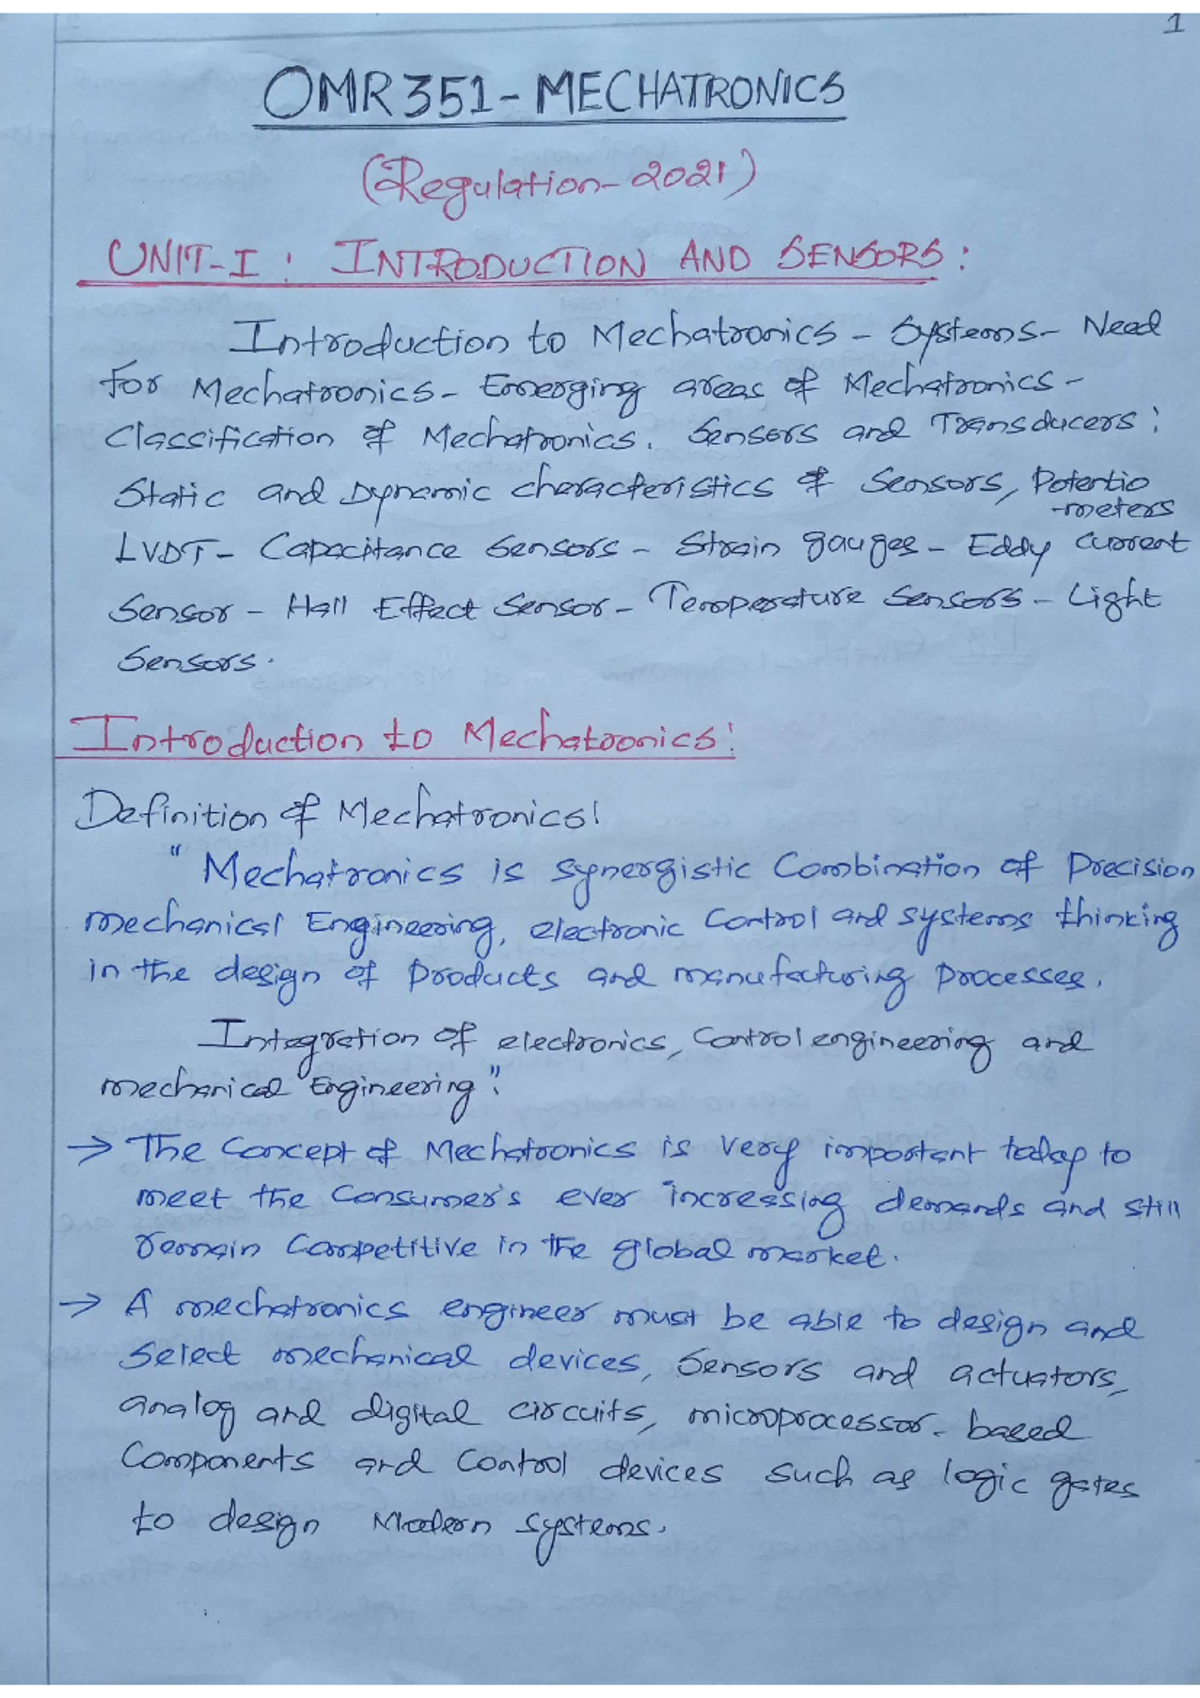 1
OMR351-MECHATRONICS
(Regulation-2021)
UNIT-I: INTRODUCTION AND SENSORS:
Introduction to Mechatronics - Systems - Need
for Mechatronics - Emerging areas of Mechatronics -
Classification of Mechatronics. Sensors and Transducers:
Static and Dynamic characteristics of Sensors, Potentio
-meters
LVDT - Capacitance Sensors - Strain gauges - Eddy current
Sensor - Hall Effect Sensor - Temperature Sensors - Light
Sensors.
Introduction to Mechatronics:
Definition of Mechatronics:
"Mechatronics is synergistic Combination of Precision
mechanical Engineering, electronic Control and systems thinking
in the design of Products and manufacturing Processes.
Integration of electronics, Control engineering and
mechanical Engineering".
→ The Concept of Mechatronics is very important today to
meet the Consumer's ever increasing demands and still
remain Competitive in the global market.
→ A mechatronics engineer must be able to design and
Select mechanical devices, Sensors and actuators,
analog and digital circuits, microprocessor-based
Components and Control devices such as logic gates
to design Modern systems.